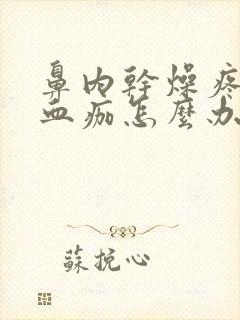 鼻内幹燥疼
血痂怎麼办
蘇挽心